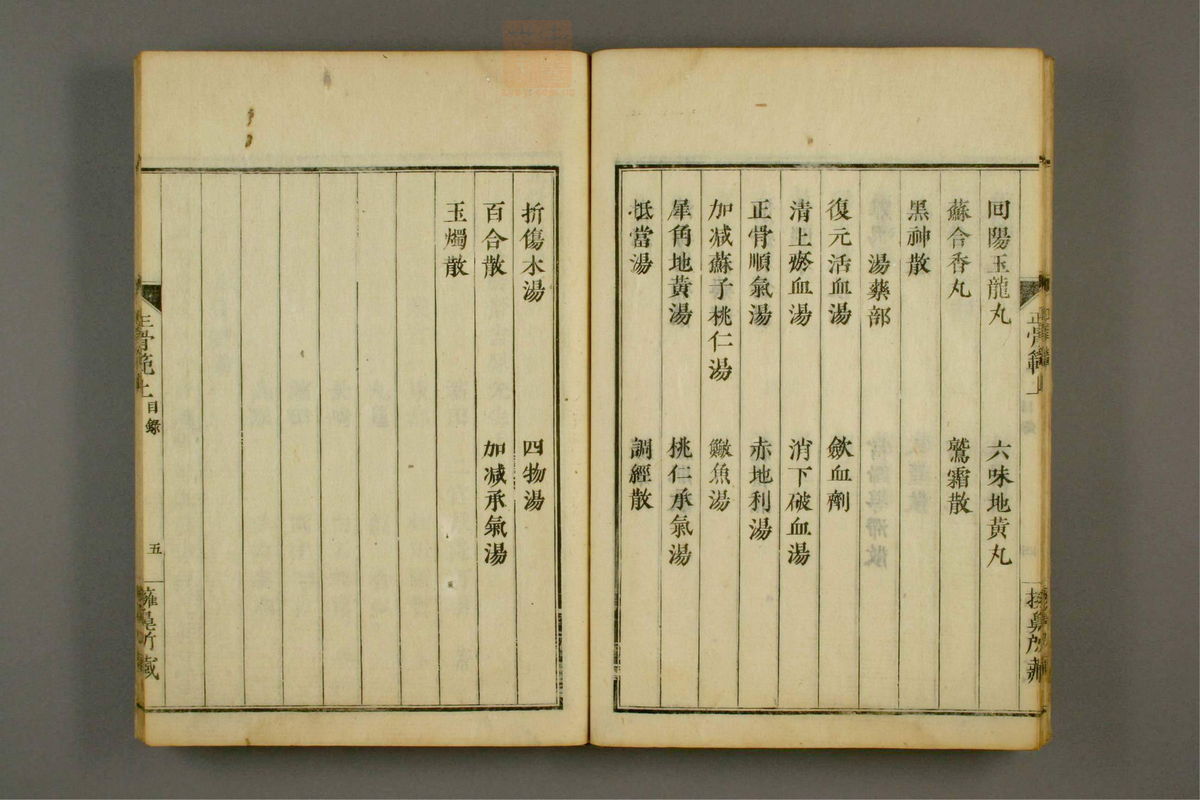 回陽玉龍丸 六味地黃丸
蘇合香丸 鷲霜散
黑神散
湯藥部
復元活血湯 歛血劑
清上瘀血湯 消下破血湯
正骨順氣湯 赤地利湯
加减蘇子桃仁湯 鰲魚湯
犀角地黃湯 桃仁承氣湯
抵當湯 調經散
折傷木湯 四物湯
百合散 加减承氣湯
玉燭散
正骨範上 目錄 五